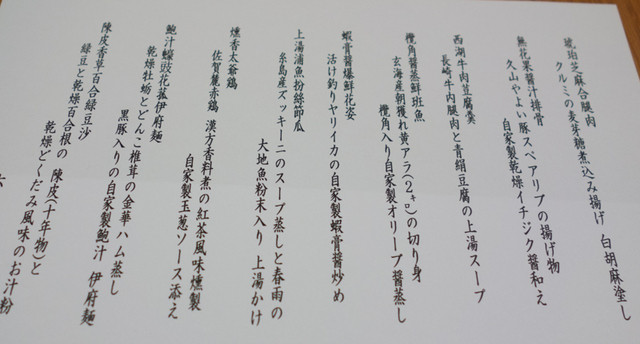 琥珀芝麻合腿肉
クルミの麦芽糖煮込み揚げ 白胡麻塗し
無花果醤汁排骨
久山やよい豚スペアリブの揚げ物
自家製乾燥イチジク醤和え
西湖牛肉豆腐羹
長崎牛内腿肉と青絹豆腐の上湯スープ
欖角醤蒸鮮班魚
玄海産朝穫れ黄アラ(2㌔)の切り身
欖角入り自家製オリーブ醤蒸し
蝦膏醤爆鮮花姿
活け釣りヤリイカの自家製蝦膏醤炒め
上湯浦魚扮絲節瓜
糸島産ズッキーニのスープ蒸しと春雨の
大地魚粉末入り 上湯かけ
燻香太爺鶏
佐賀麓赤鶏 漢方香料煮の紅茶風味燻製
自家製玉葱ソース添え
鮑汁蠔豉花菰伊府麺
乾燥牡蛎とどんこ椎茸の金華ハム蒸し
黒豚入りの自家製鮑汁 伊府麺
陳皮香草百合緑豆沙
緑豆と乾燥百合根の 陳皮(十年物)と
乾燥どくだみ風味のお汁粉